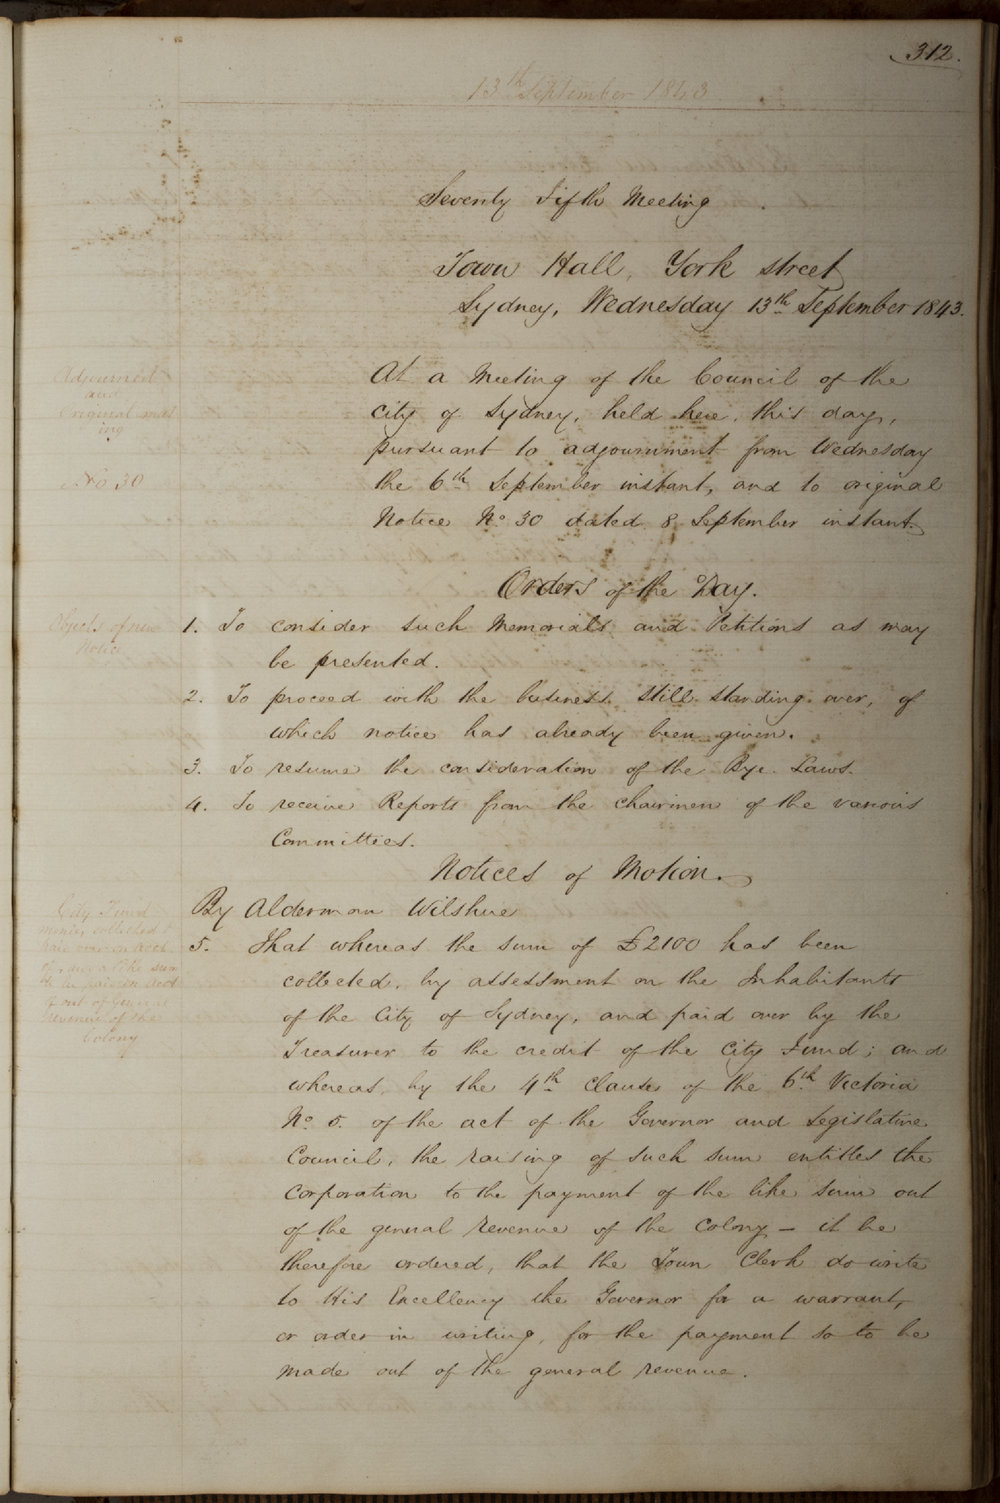 312.
13th September 1843
Seventy Fifth Meeting
Town Hall, York street
Sydney, Wednesday 13th September 1843.
Adjourned
and
Original meet
ing
No 30
At a Meeting of the Council of the
City of Sydney, held here, this day,
pursuant to adjournment from Wednesday
the 6th September instant, and to original
Notice No. 30 dated 8 September instant.
Orders of the Day.
Objects of new
Notice
1. To consider such Memorials and Petitions as may
be presented.
2. To proceed with the business still standing over, of
which notice has already been given.
3. To resume the consideration of the Bye Laws.
4. To receive Reports from the chairmen of the various
Committees.
Notices of Motion.
City Fund
monies collected &
paid over on acct
of a like sum
to be paid on acct
of out of General
revenue of the
Colony
By Alderman Wilshire
5. That whereas the sum of £2100 has been
collected, by assessment on the Inhabitants
of the City of Sydney, and paid over by the
Treasurer to the credit of the City Fund; and
whereas, by the 4th Clause of the 6th Victoria
No. 5. of the act of the Governor and Legislative
Council, the raising of such sum entitles the
Corporation to the payment of the like sum out
of the general revenue of the Colony — it be
therefore ordered, that the Town Clerk do write
to His Excellency the Governor for a warrant,
or order in writing, for the payment so to be
made out of the general revenue.